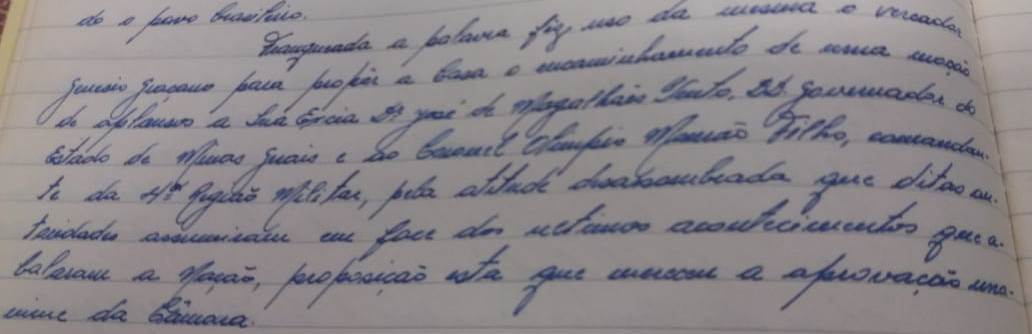 do o povo brasileiro.
Franqueada a palavra fez uso da mesma o vereador
Genesio Graciano para propôr a Casa o encaminhamento de uma moção
de aplauso a Sua Excia Dr José de Magalhães Pinto, DD Governador do
Estado de Minas Gerais e ao Coronel Olimpio Mourão Filho, comandan-
te da 4ª Região Militar, pela atitude desassombrada que ditas au-
toridades assumiram em face dos ultimos acontecimentos que a-
balaram a Nação, proposição esta que mereceu a aprovação una-
nime da Câmara.